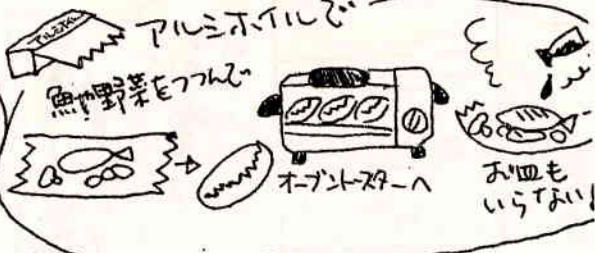 アルミホイル
アルミホイルで
魚や野菜をつつんで
オーブントースターへ
お皿も
いらない!